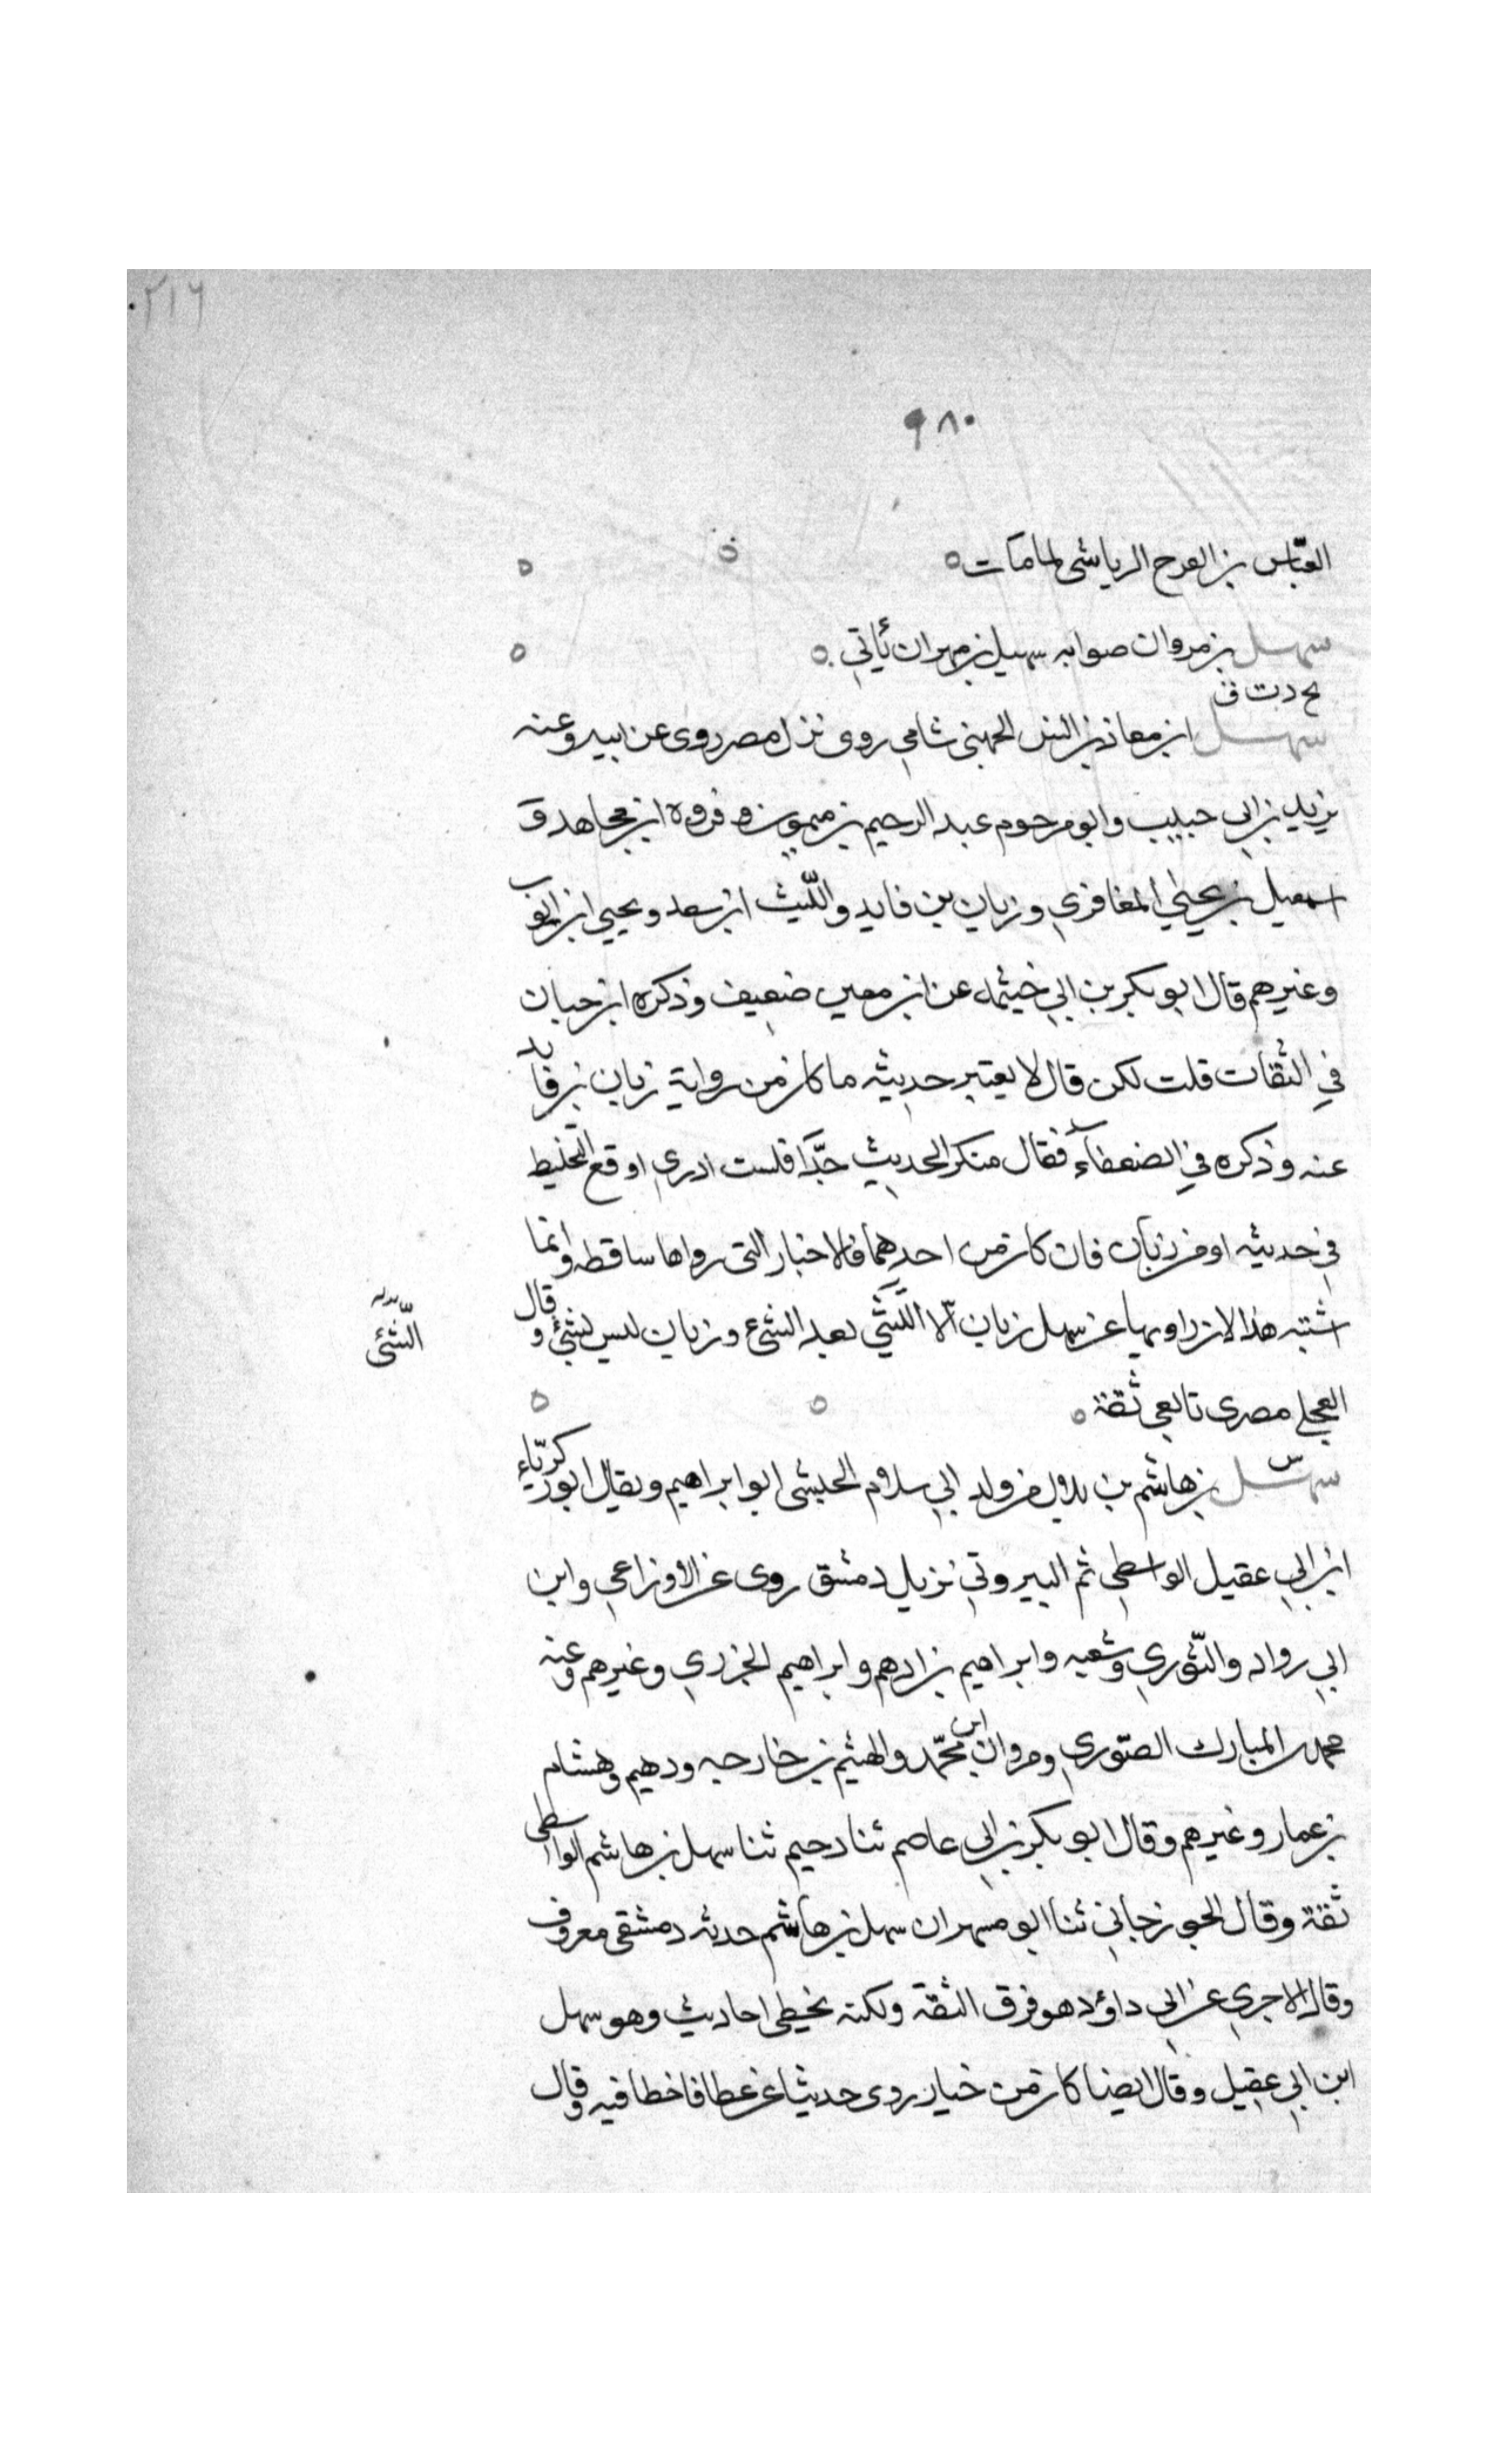 ٢١٦
٩٨٠
العبّاس بن الفرح الرياشى لمامات
سهل بن مروان صوابه سهيل بن مهران يأتي
بخ د ت ق
سهل ابن معاذ بن انس الجهني شامي روى نزل مصر روى عن ابيه وعنه
يزيد بن ابى حبيب وابو مرحوم عبد الرحيم بن ميمون و فروه ابن مجاهد و
اسمعيل بن يحيى المغافري و زبان بن فايد والليث ابن سعد و يحيى ابن ايوب
وغيرهم قال ابو بكر بن ابي خيثمه عن ابن معين ضعيف وذكره ابن حبان
في الثقات قلت لكن قال لا يعتبر حديثه ما كان من رواية زبان بن فايد
عنه وذكره في الضعفاء فقال منكر الحديث جدّا فلست ادري اوقع التخليط
في حديثه او من زبان فان كان من احدهما فالاخبار التى رواها ساقطه وانما
اشتبه هذا لان راويها عن سهل زبان الا الشيء بعد الشئ وزبان ليس بشئ و قال
الشّئ
العجلي مصرى تابعي ثقة
س
سهل بن هاشم بن بلال من ولد ابي سلام الحبشى ابو ابراهيم ويقال ابو زكريّاء
ابن ابي عقيل الواسطي ثم البيروتي نزيل دمشق روى عن الاوزاعي وابن
ابي رواد والثّوري وشعبه وابراهيم بن ادهم وابراهيم الخزري وغيرهم وعنه
محمد بن المبارك الصّوري ومروان ابن محمّد والهيثم بن خارجه ودهيم وهشام
بن عمار وغيرهم وقال ابو بكر بن ابي عاصم ثنا دحيم ثنا سهل بن هاشم الواسطى
ثقة وقال الجوزجاني ثنا ابو مسهر ان سهل بن هاشم حدثه دمشقى معروف
وقال الاجري عن ابي داؤد هو فوق الثقة ولكنه يخطى احاديث وهو سهل
ابن ابي عقيل وقال ايضا كان من خيار روى حديثا عن عطا فاخطا فيه وقال